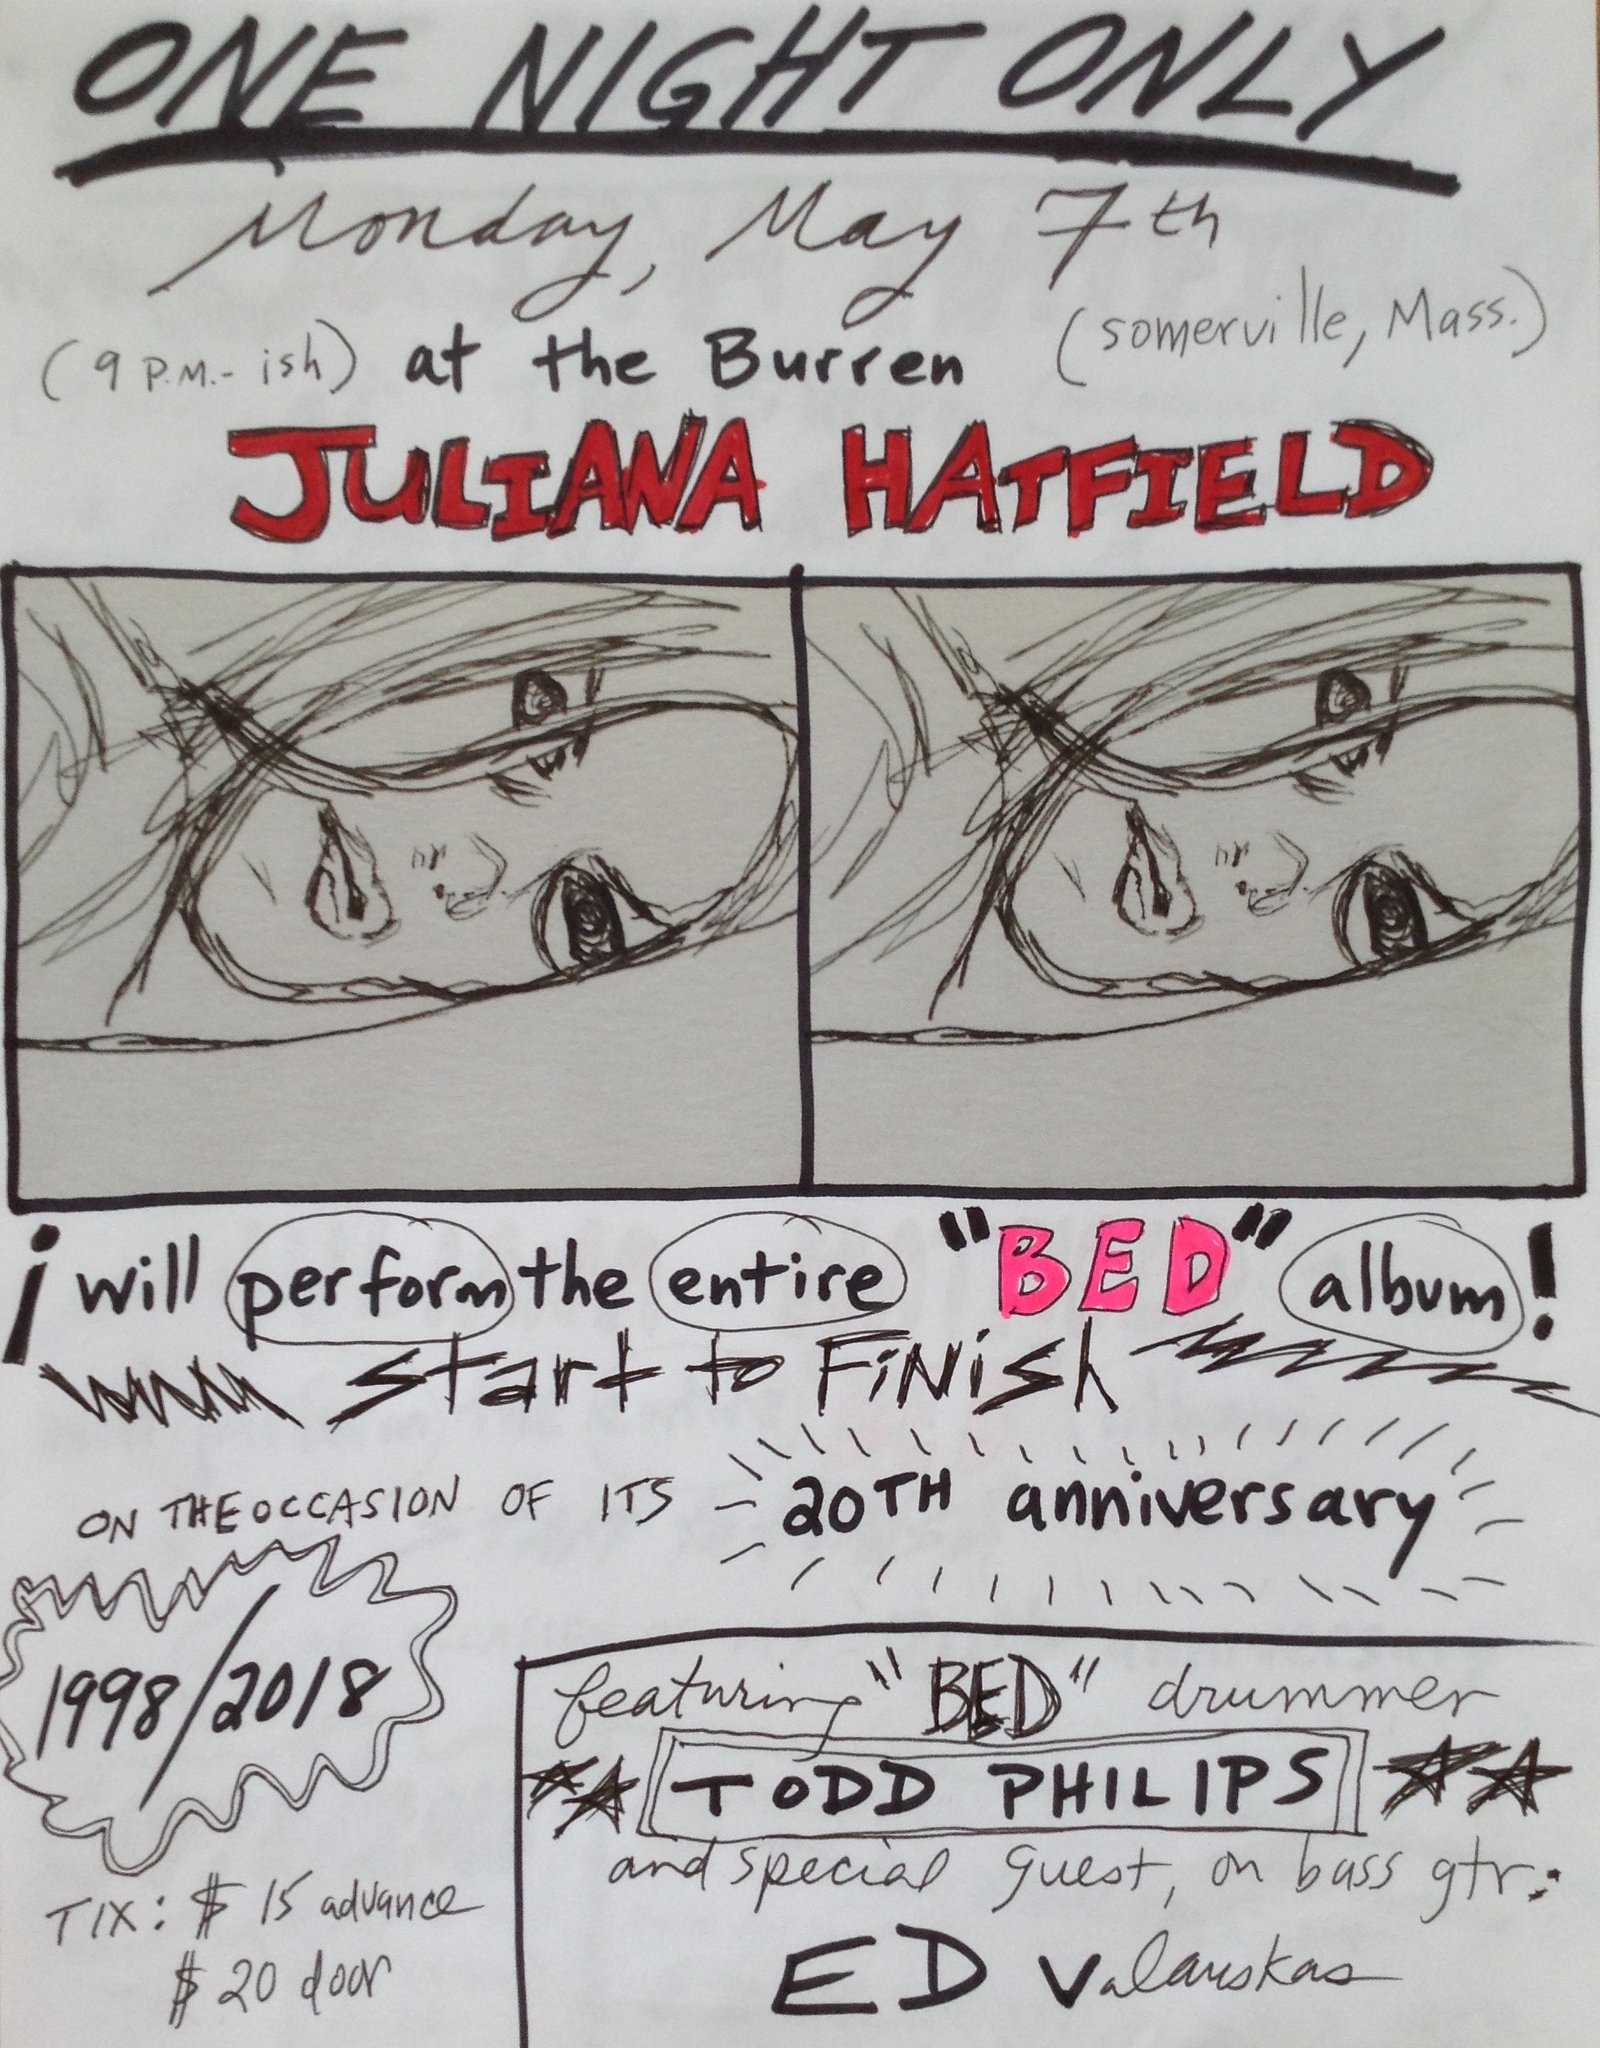 ONE NIGHT ONLY
Monday, May 7th
(9 P.M.-ish) at the Burren (somerville, Mass.)
JULIANA HATFIELD
¡ will perform the entire "BED" album!
start to FiNish
ON THE OCCASION OF ITS 20TH anniversary
1998/2018
featuring "BED" drummer
TODD PHILIPS
and special guest, on bass gtr:
ED Valauskas
TIX: $15 advance
$20 door